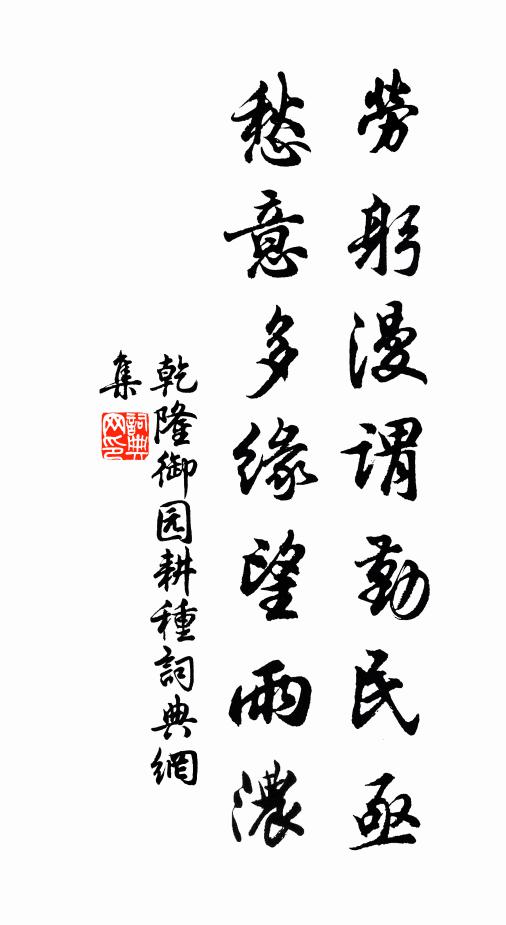 勞躬漫謂勤民亟
愁意多緣望雨濃
乾隆御园耕種詞典網
集
詞典
网印